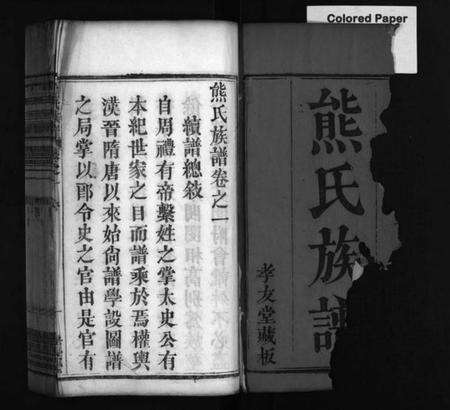 Colored Paper
熊氏族譜
孝友堂藏板
熊氏族譜卷之一
續譜總敘
自周禮有帝繫姓之掌太史公有
本紀世家之目而譜乘於焉權輿
漢晉隋唐以來始尚譜學設圖譜
之局掌以郎令史之官由是官有